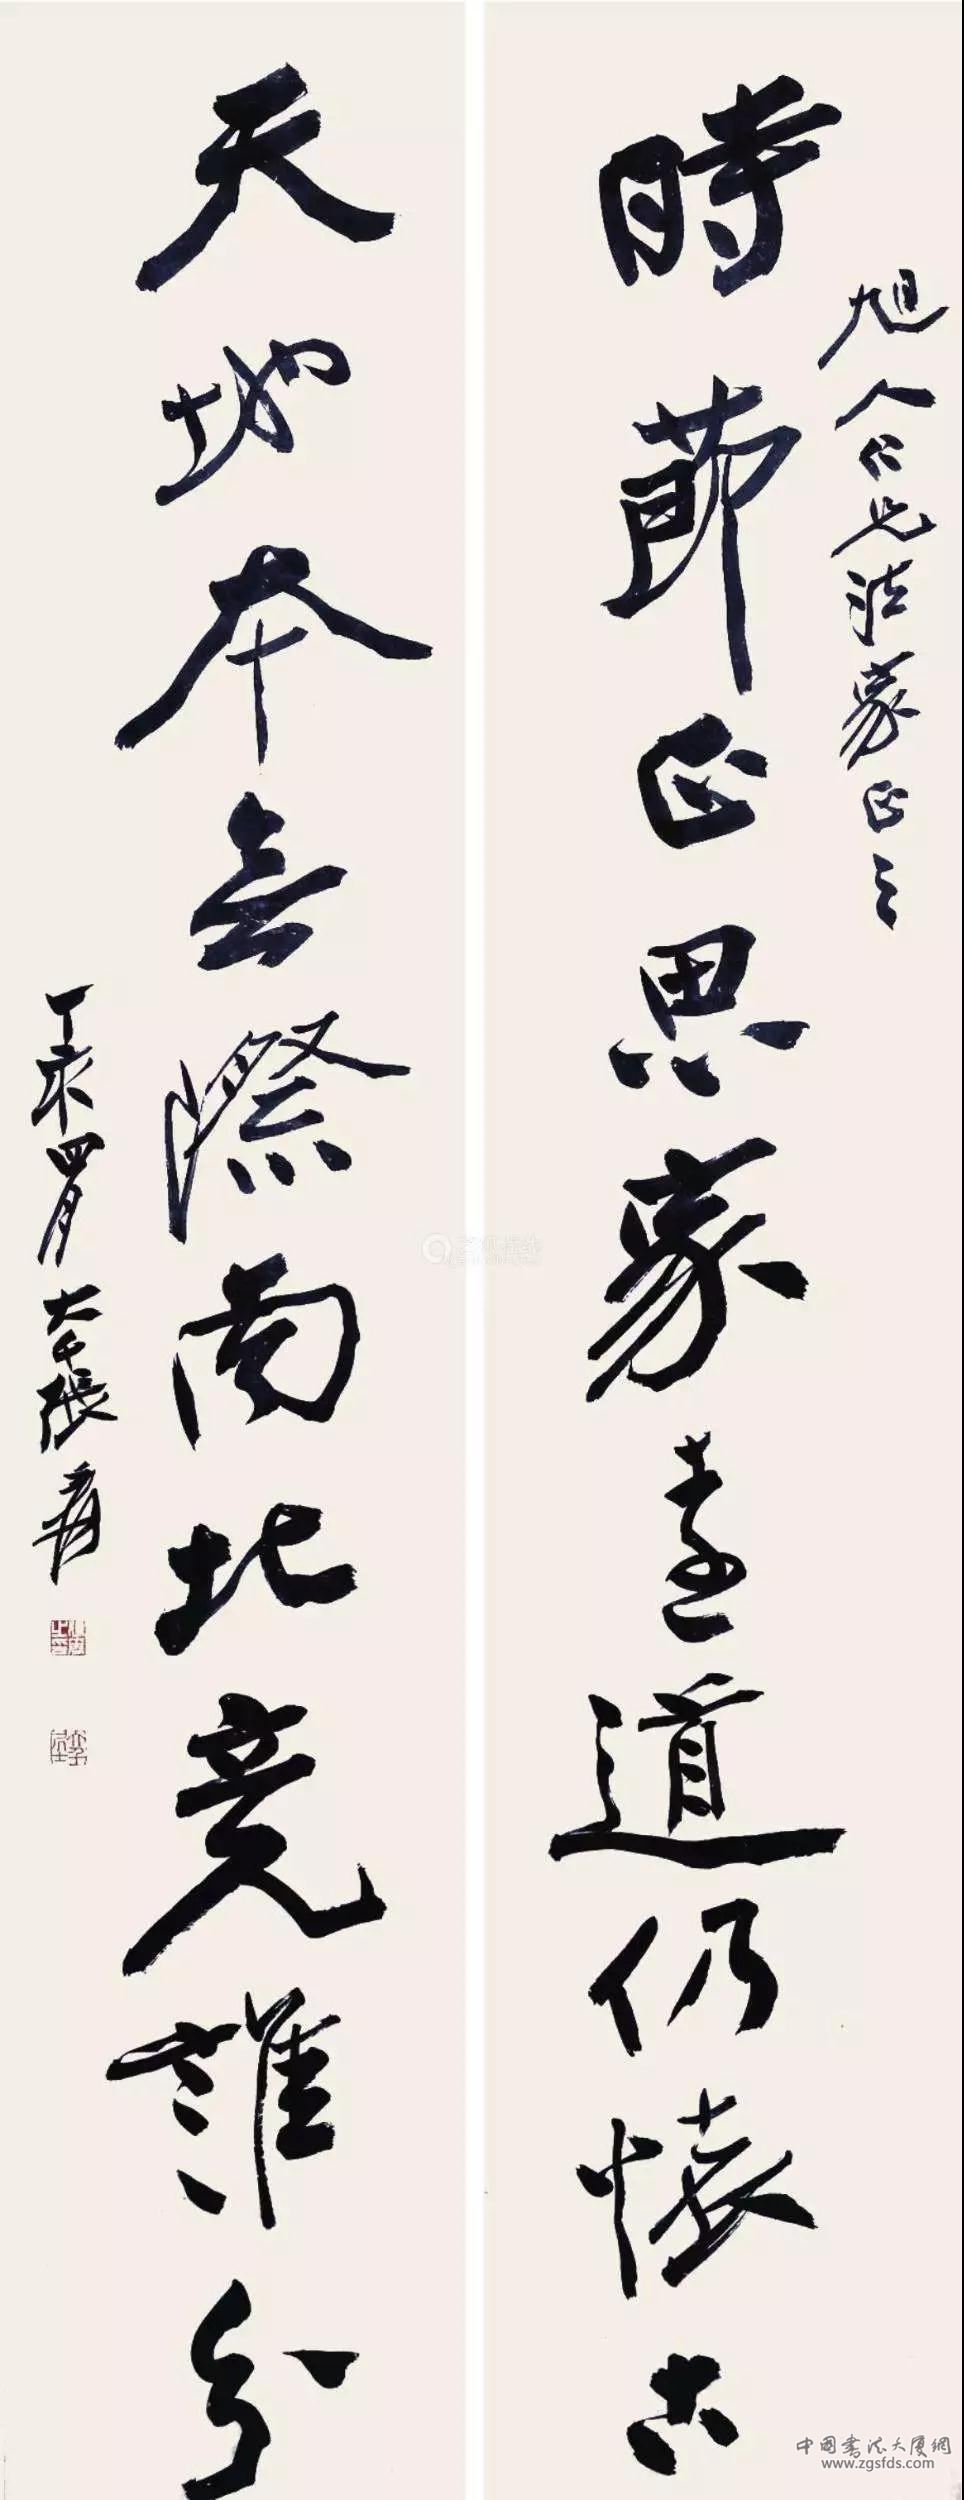 旭人仁兄法家正之
時節正思家遠道仍懷古
天地本無際南北竟誰分
丁未四月大千張爰
中國書法大廈網
www.zgsfds.com